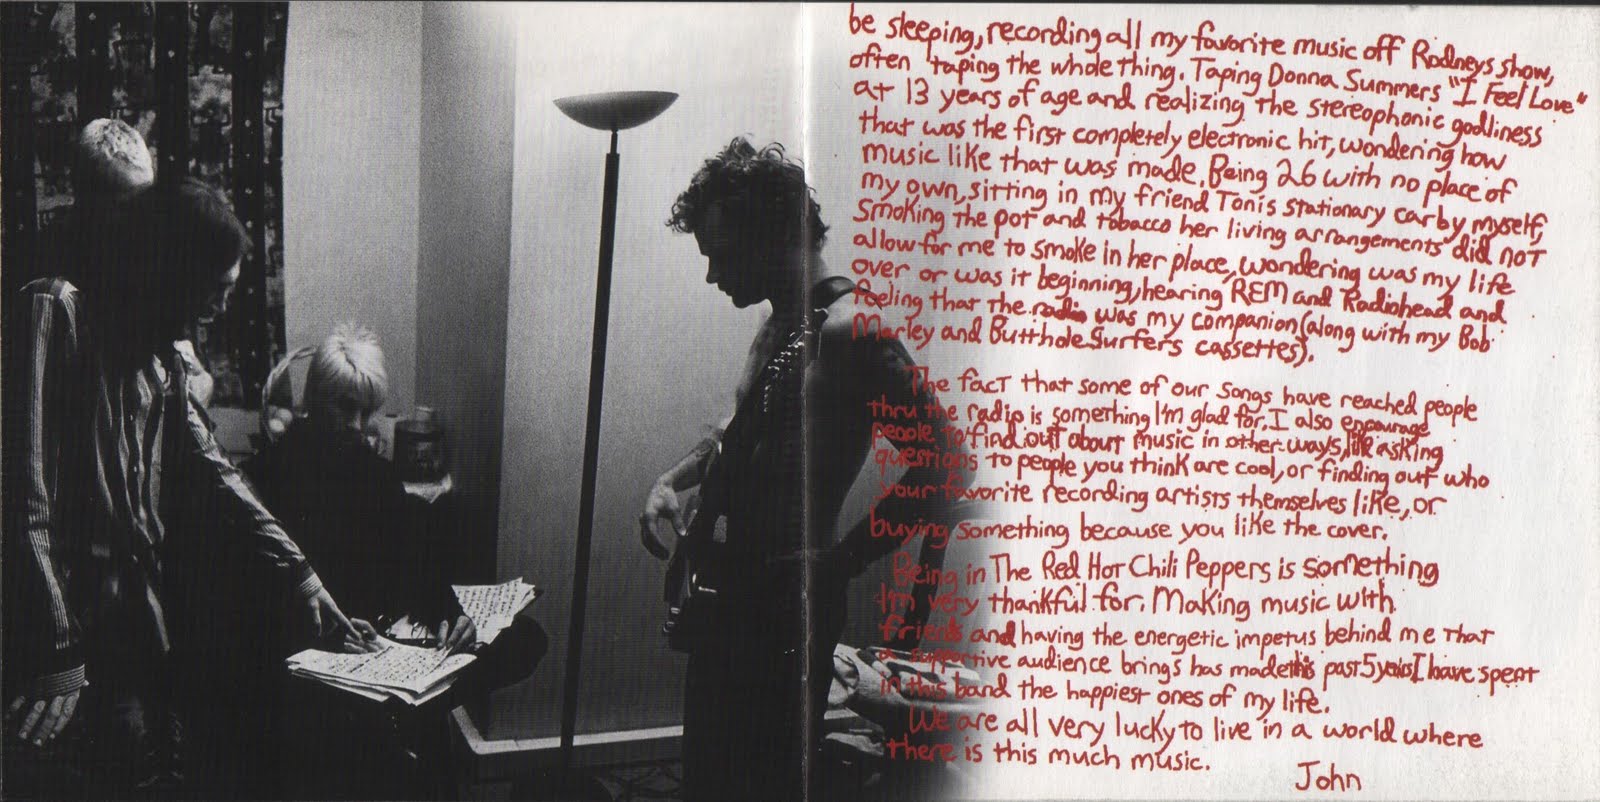 be sleeping, recording all my favorite music off Rodneys show,
often taping the whole thing. Taping Donna Summers "I Feel Love"
at 13 years of age and realizing the stereophonic godliness
that was the first completely electronic hit, wondering how
music like that was made. Being 26 with no place of
my own, sitting in my friend Toni's stationary car by myself,
smoking the pot and tobacco her living arrangements did not
allow for me to smoke in her place, wondering was my life
over or was it beginning, hearing REM and Radiohead and
feeling that the radio was my companion (along with my Bob
Marley and Butthole Surfers cassettes).
The fact that some of our songs have reached people
thru the radio is something I'm glad for. I also encourage
people to find out about music in other ways, like asking
questions to people you think are cool, or finding out who
your favorite recording artists themselves like, or
buying something because you like the cover.
Being in The Red Hot Chili Peppers is something
I'm very thankful for. Making music with
friends and having the energetic impetus behind me that
a supportive audience brings has made this past 5 years I have spent
in this band the happiest ones of my life.
We are all very lucky to live in a world where
there is this much music.
John